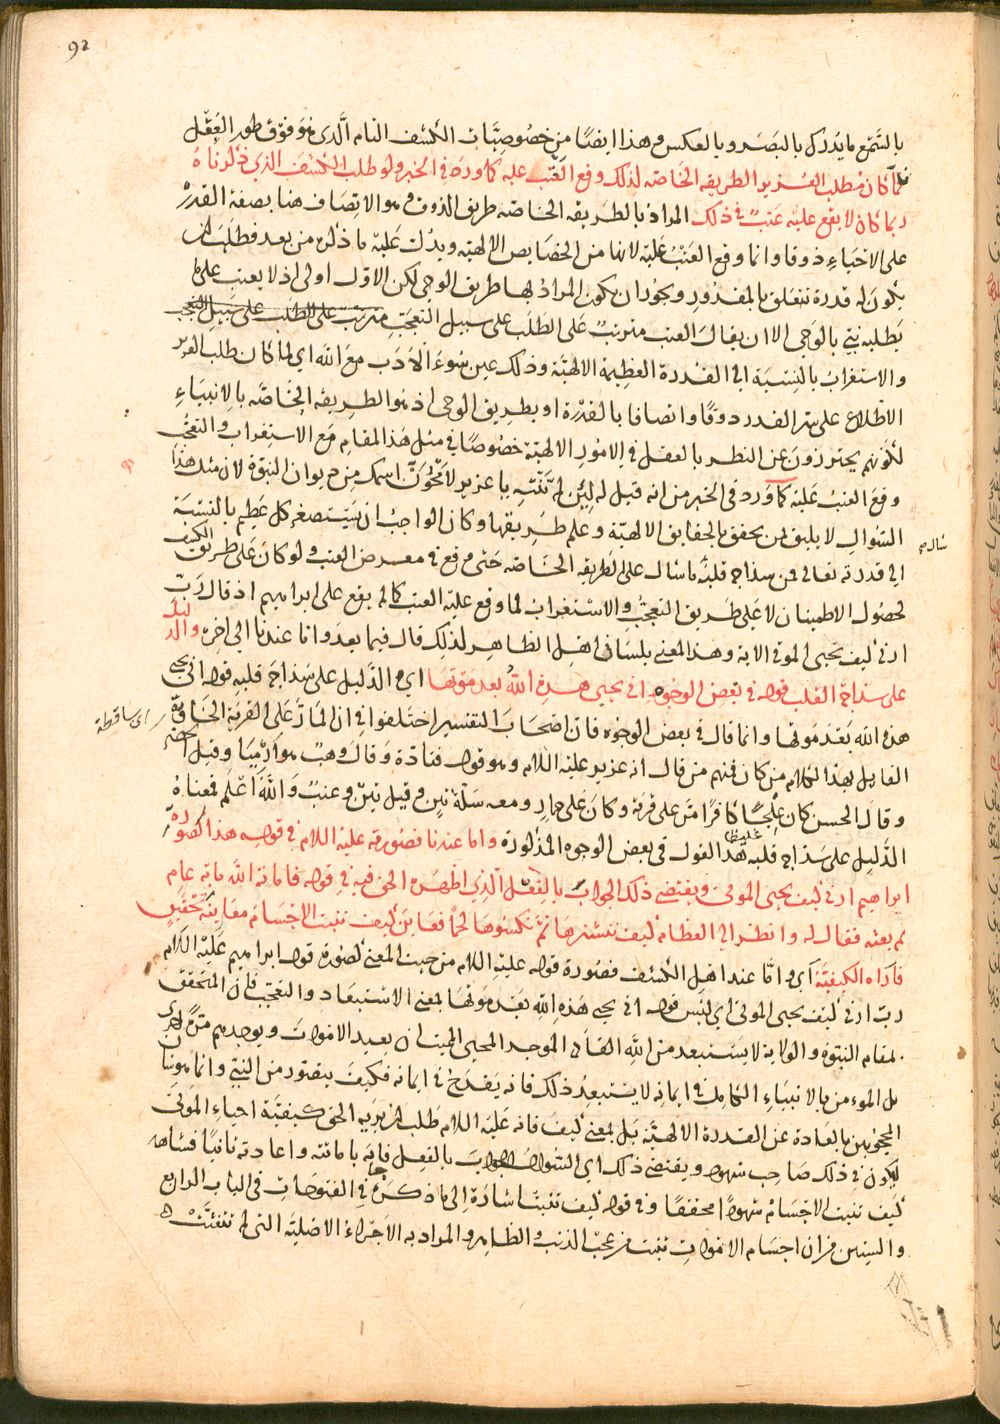 92
بالسمع ما يدرك بالبصر وبالعكس وهذا ايضا من خصوصيات الكشف التام الذى هو فوق طور العقل
فلما كان مطلب العزير الطريقة الخاصة لذلك وقع العتب عليه كما ورد فى الخبر ولو طلب الكشف الذى ذكرناه
ربما كان لا يقع عليه عتب فى ذلك المراد بالطريقة الخاصة طريق الذوق وهو الاتصاف هنا بصفة القدرة
على الاحياء ذوقا وانما وقع العتب عليه لانها من الخصايص الالهية ويدل عليه ما ذكره من بعد فطلب ان
يكون له قدرة تتعلق بالمقدور ويجوز ان يكون المراد بها طريق الوحى لكن الاول اولى اذ لا يعتب على ما
يطلبه نبى بالوحى الا ان يقال العتب مترتب على الطلب على سبيل التعجب مترتب على الطلب على سبيل التعجب
والاستغراب بالنسبة الى القدرة العظيمة الالهية وذلك عين سوء الادب مع الله اى لما كان طلب العزير
الاطلاع على سر القدر ذوقا واتصافا بالقدرة او بطريق الوحى اذ هو الطريقة الخاصة بالانبياء
لكونهم يحترزون عن النظر بالعقل فى الامور الالهية خصوصا فى مثل هذا المقام مع الاستغراب والتعجب
وقع العتب عليه كما ورد فى الخبر من انه قيل له لئن لم تنته يا عزير لامحون اسمك من ديوان النبوة لان مثل هذا
السؤال لا يليق لمن يحقق بالحقايق الالهية وعلم طريقها وكان الواجب ان يستصغر كل عظيم بالنسبة
الى قدرته تعالى فمن سذاجة قلبه ما سال على الطريقة الخاصة حتى وقع فى معرض العتب ولو كان على طريق الكشف
سال صح
لحصول الاطمينان لا على طريق التعجب والاستغراب لما وقع عليه العتب كما لم يقع على ابراهيم اذ قال رب
ارنى كيف تحيى الموتى الاية وهذا المعنى بلسان اهل الظاهر لذلك قال فيما بعد واما عندنا الى اخره والدليل
على سذاجة القلب قوله فى بعض الوجوه انى يحيى هذه الله بعد موتها اى والدليل على سذاجة قلبه قوله انى يحيى
هذه الله بعد موتها وانما قال فى بعض الوجوه فان اصحاب التفسير اختلفوا فى ان المار على القرية الخاوية
اى ساقطة
القايل بهذا الكلام من كان فمنهم من قال انه عزير عليه السلام وهو قول قتادة وقال وهب هو ارميا وقيل الخضر
وقال الحسن كان علجا كافرا مر على قرية وكان على حمار ومعه سلة تين وقيل تين وعنب والله اعلم فمعناه
غليظا
الدليل على سذاجة قلبه هذا القول فى بعض الوجوه المذكورة واما عندنا فصورته عليه السلام فى قوله هذا كصورة
ابراهيم ارنى كيف تحيى الموتى ويقتضى ذلك الجواب بالفعل الذى اظهره الحق فيه فى قوله فاماته الله ماية عام
ثم بعثه فقال له وانظر الى العظام كيف ننشزها ثم نكسوها لحما فعاين كيف تنبت الاجسام معاينة تحقيق
فاراه الكيفية اى واما عند اهل الكشف فصورة قوله عليه السلام من حيث المعنى كصورة قول ابراهيم عليه السلام
رب ارنى كيف تحيى الموتى اى ليس قوله انى يحيى هذه الله بعد موتها بمعنى الاستبعاد والتعجب فان المتحقق
بمقام النبوة والولاية لا يستبعد من الله القادر الموجد المحيى المميت ان يعيد الاموات ويوجدهم مرة اخرى
بل المومن بالانبياء الكامل فى ايمانه لا يستبعد ذلك فانه يقدح فى ايمانه فكيف يتصور من النبى وانما هو شان
المحجوبين بالعادة عن القدرة الالهية بل بمعنى كيف فانه عليه السلام طلب ان يريه الحق كيفية احياء الموتى
ليكون فى ذلك صاحب شهود ويقتضى ذلك اى السؤال الجواب بالفعل فاجابه باماتته واعادته ثانيا فشاهد
كيف تنبت الاجسام شهودا محققا وفى قوله كيف تنبت اشارة الى ما ذكره فى الفتوحات فى الباب الرابع
والستين من ان اجسام الاموات تنبت من عجب الذنب والظاهر والمراد به الاجزاء الاصلية التى لا تتفتت